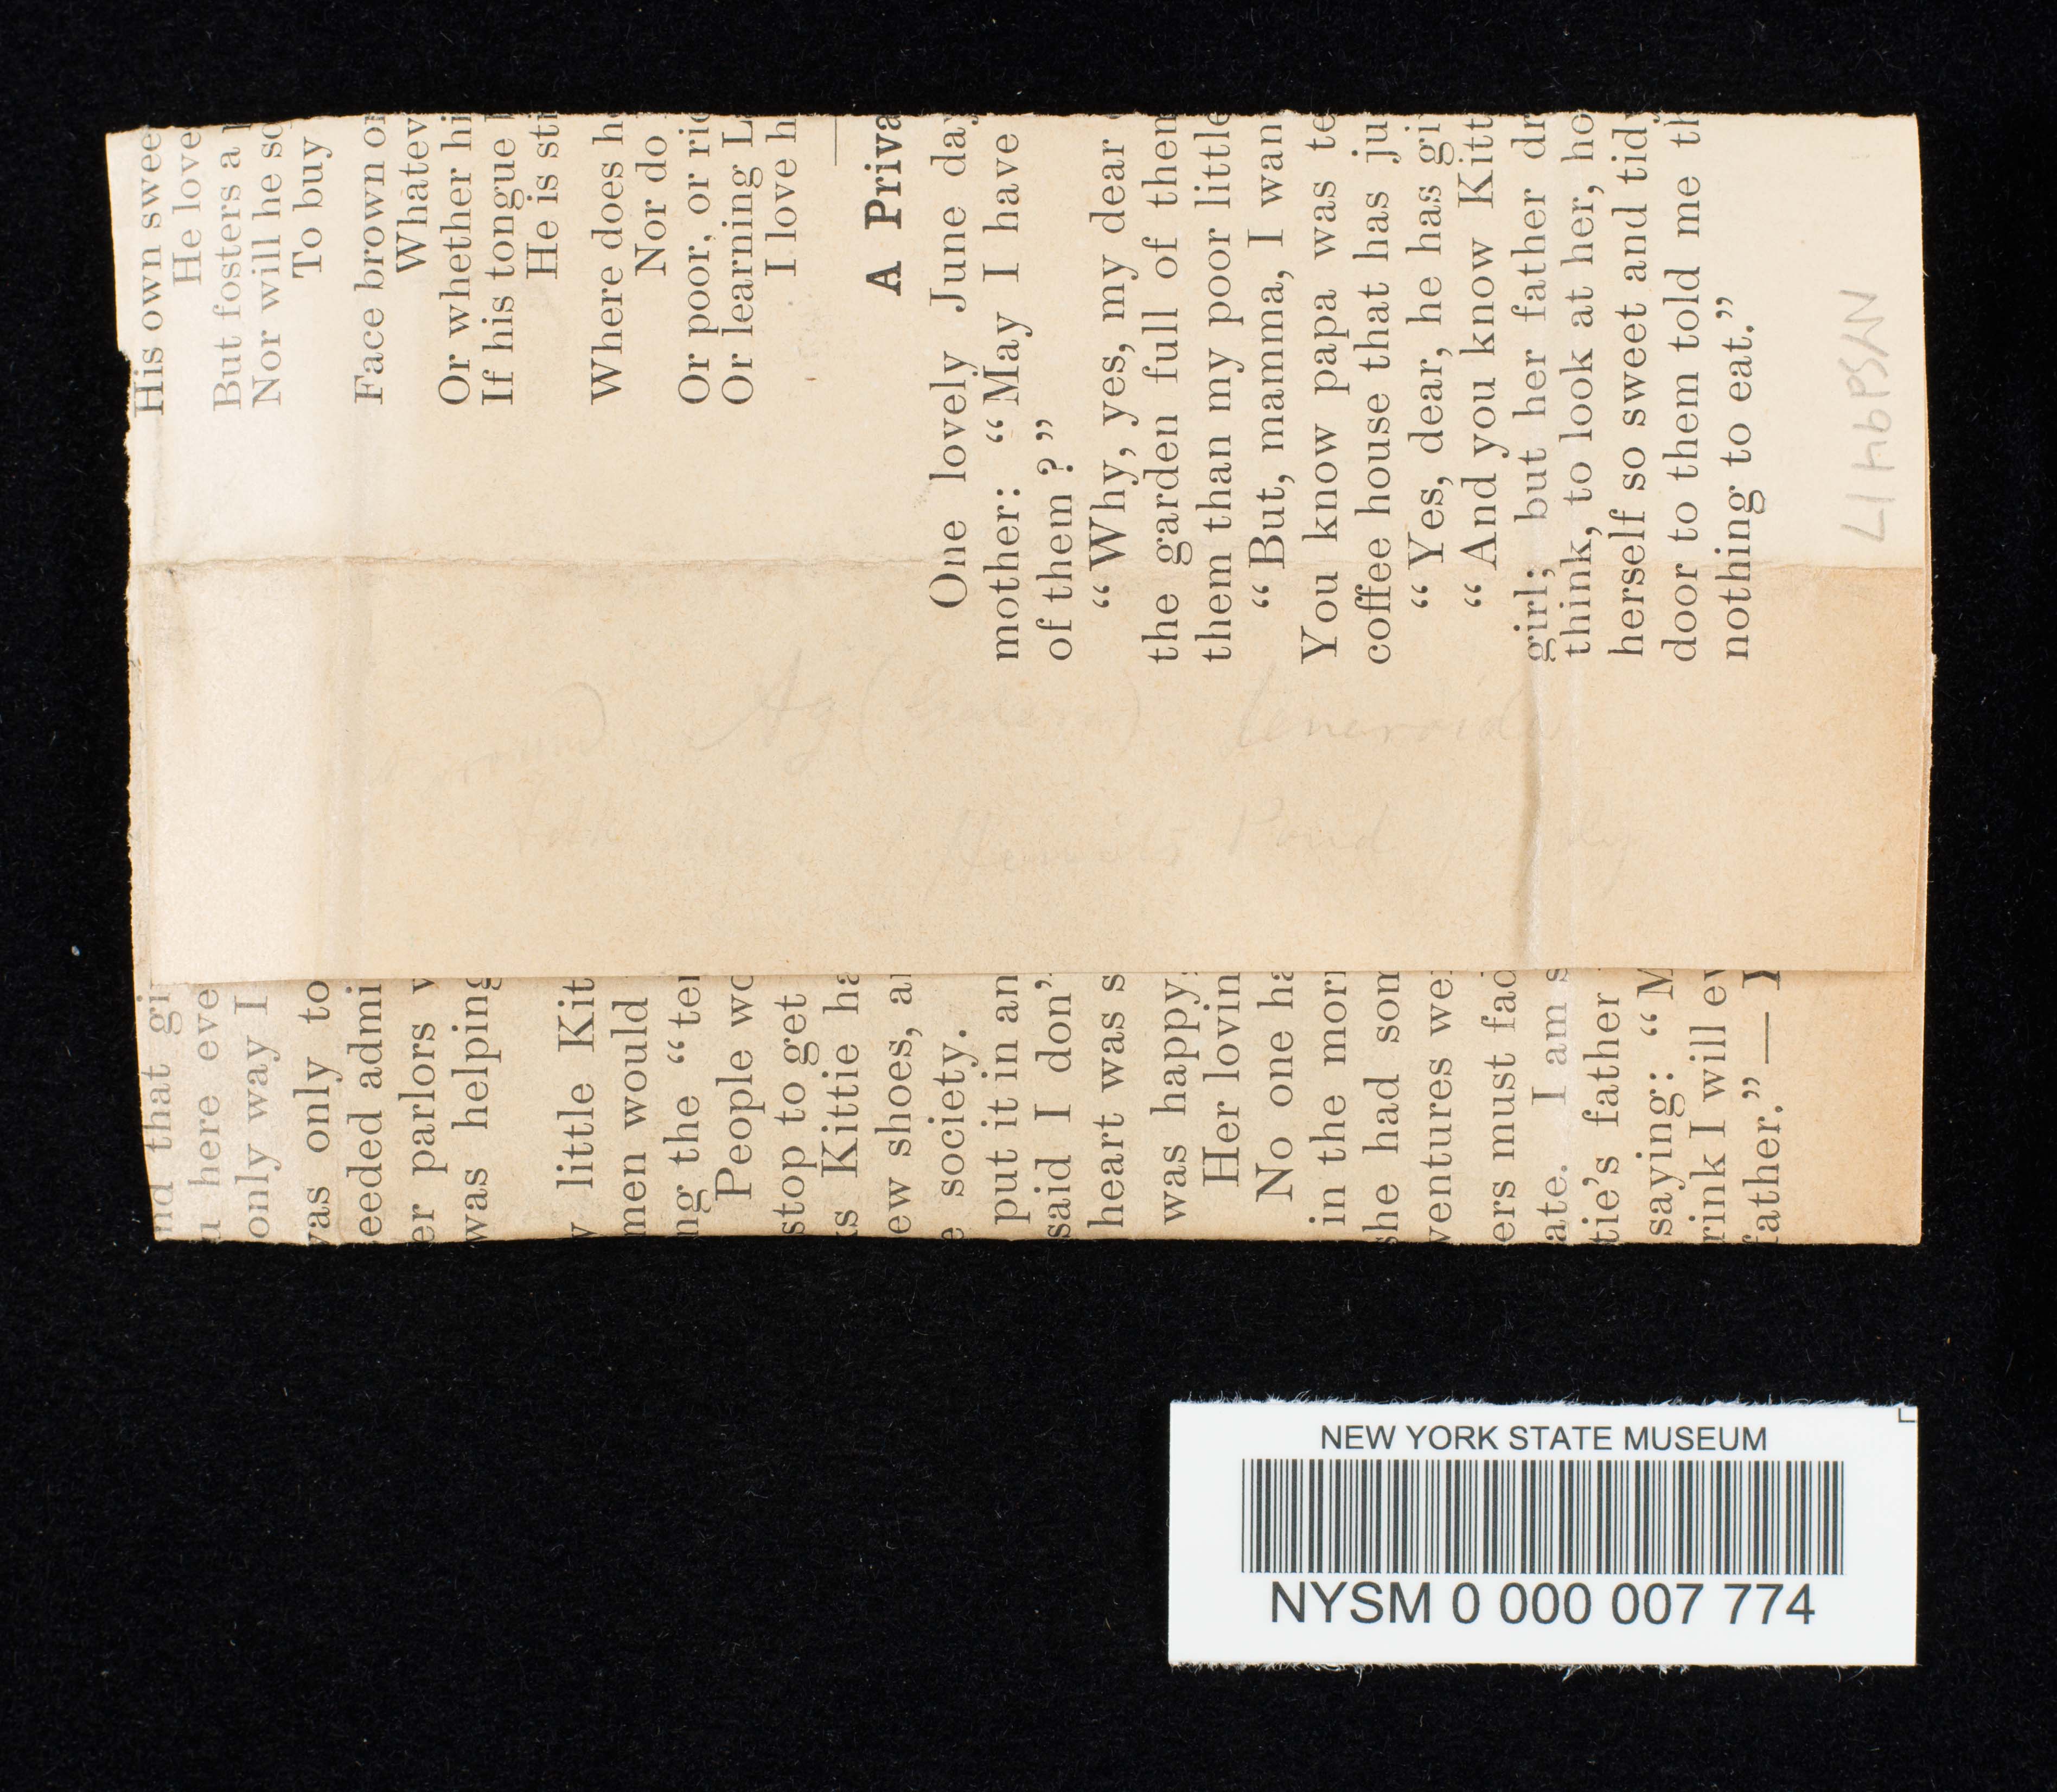 His own swee
He love
But fosters a
Nor will he so
To buy
Face brown or
Whatev
Or whether hi
If his tongue
He is str
Where does h
Nor do
Or poor, or ric
Or learning L
I love h
A Priva
One lovely June day
mother: “May I have
of them?”
“Why, yes, my dear
the garden full of them
them than my poor little
“But, mamma, I wan
You know papa was te
coffee house that has ju
“Yes, dear, he has gi
“And you know Kitt
girl; but her father dr
think, to look at her, ho
herself so sweet and tidy
door to them told me th
nothing to eat.”
Ag
Pond
nd that gi
u here eve
only way I
was only to
eeded admi
er parlors w
was helping
y little Kit
men would
ng the “ter
People wo
stop to get
s Kittie ha
ew shoes, a
e society.
put it in an
said I don’
heart was s
was happy.
Her lovin
No one ha
in the morn
she had som
ventures we
ers must fad
ate. I am s
tie’s father
saying: “M
rink I will ev
father.”—Y
NEW YORK STATE MUSEUM
NYSM 0 000 007 774